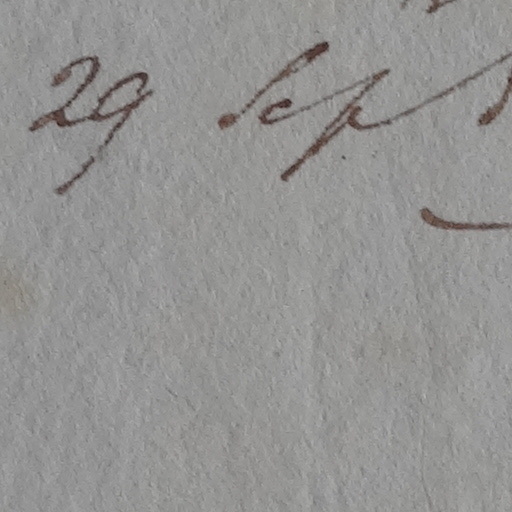 29 Sep